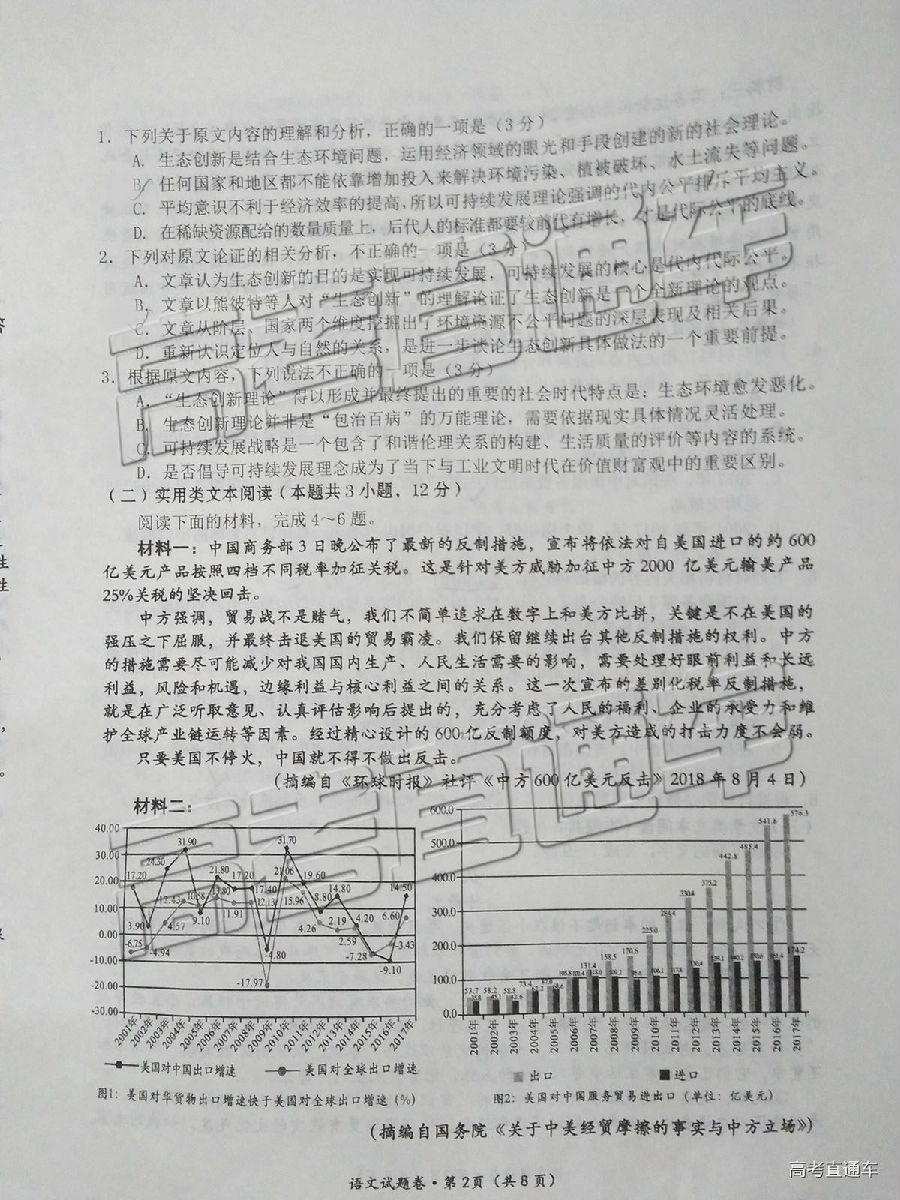 1. 下列关于原文内容的理解和分析，正确的一项是（3分）
A. 生态创新是结合生态环境问题，运用经济领域的眼光和手段创建的新的社会理论。
B. 任何国家和地区都不能依靠增加投入来解决环境污染、植被破坏、水土流失等问题。
C. 平均意识不利于经济效率的提高，所以可持续发展理论强调的代内公平排斥平均主义。
D. 在稀缺资源配给的数量质量上，后代人的标准都要较前代有增长，才是代际公平的底线。
2. 下列对原文论证的相关分析，不正确的一项是（3分）
A. 文章认为生态创新的目的是实现可持续发展，可持续发展的核心是代内代际公平。
B. 文章以熊彼特等人对“生态创新”的理解论证了生态创新是一个全新理论的观点。
C. 文章从阶层、国家两个维度挖掘出了环境资源不公平问题的深层表现及相关后果。
D. 重新认识定位人与自然的关系，是进一步谈论生态创新具体做法的一个重要前提。
3. 根据原文内容，下列说法不正确的一项是（3分）
A. “生态创新理论”得以形成并最终提出的重要的社会时代特点是：生态环境愈发恶化。
B. 生态创新理论并非是“包治百病”的万能理论，需要依据现实具体情况灵活处理。
C. 可持续发展战略是一个包含了和谐伦理关系的构建、生活质量的评价等内容的系统。
D. 是否倡导可持续发展理念成为了当下与工业文明时代在价值财富观中的重要区别。
（二）实用类文本阅读（本题共3小题，12分）
阅读下面的材料，完成4～6题。
材料一：中国商务部3日晚公布了最新的反制措施，宣布将依法对自美国进口的约600
亿美元产品按照四档不同税率加征关税。这是针对美方威胁加征中方2000 亿美元输美产品
25%关税的坚决回击。
中方强调，贸易战不是赌气，我们不简单追求在数字上和美方比拼，关键是不在美国的
强压之下屈服，并最终击退美国的贸易霸凌。我们保留继续出台其他反制措施的权利。中方
的措施需要尽可能减少对我国国内生产、人民生活需要的影响，需要处理好眼前利益和长远
利益，风险和机遇，边缘利益与核心利益之间的关系。这一次宣布的差别化税率反制措施，
就是在广泛听取意见、认真评估影响后提出的，充分考虑了人民的福利、企业的承受力和维
护全球产业链运转等因素。经过精心设计的600亿反制额度，对美方造成的打击力度不会弱。
只要美国不停火，中国就不得不做出反击。
（摘编自《环球时报》社评《中方600亿美元反击》2018年8月4日）
材料二：
40.00
30.00
20.00
10.00
0.00
-10.00
-20.00
-30.00
17.20 3.90 24.30 31.90 9.10 21.80 17.20 17.40 31.70 19.60 8.80 14.80 4.20 -7.28 -9.10 14.50
-6.75 -4.94 4.57 12.43 10.58 13.80 11.91 12.13 -17.97 21.06 15.96 4.26 2.19 2.59 6.60 -3.43 -4.80
2001年 2002年 2003年 2004年 2005年 2006年 2007年 2008年 2009年 2010年 2011年 2012年 2013年 2014年 2015年 2016年 2017年
美国对中国出口增速 美国对全球出口增速
图1：美国对华货物出口增速快于美国对全球出口增速（%）
600.0
500.0
400.0
300.0
200.0
100.0
0.0
53.7 58.2 58.8 73.4 131.4 158.5 170.5 225.0 284.4 330.4 375.2 442.8 485.4 541.6 576.3
174.2
2001年 2002年 2003年 2004年 2005年 2006年 2007年 2008年 2009年 2010年 2011年 2012年 2013年 2014年 2015年 2016年 2017年
出口 进口
图2：美国对中国服务贸易进出口（单位：亿美元）
（摘编自国务院《关于中美经贸摩擦的事实与中方立场》）
语文试题卷·第2页（共8页）
高考直通车
高考直通车
高考直通车